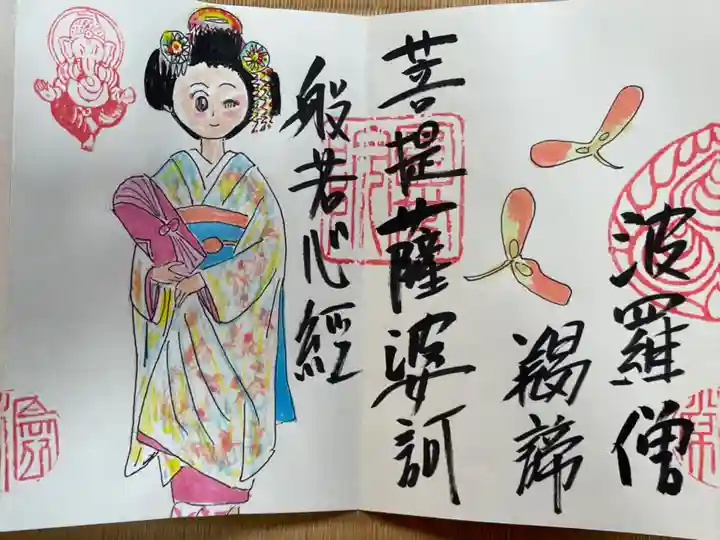 波羅僧
羯諦
菩提薩婆訶
般若心経